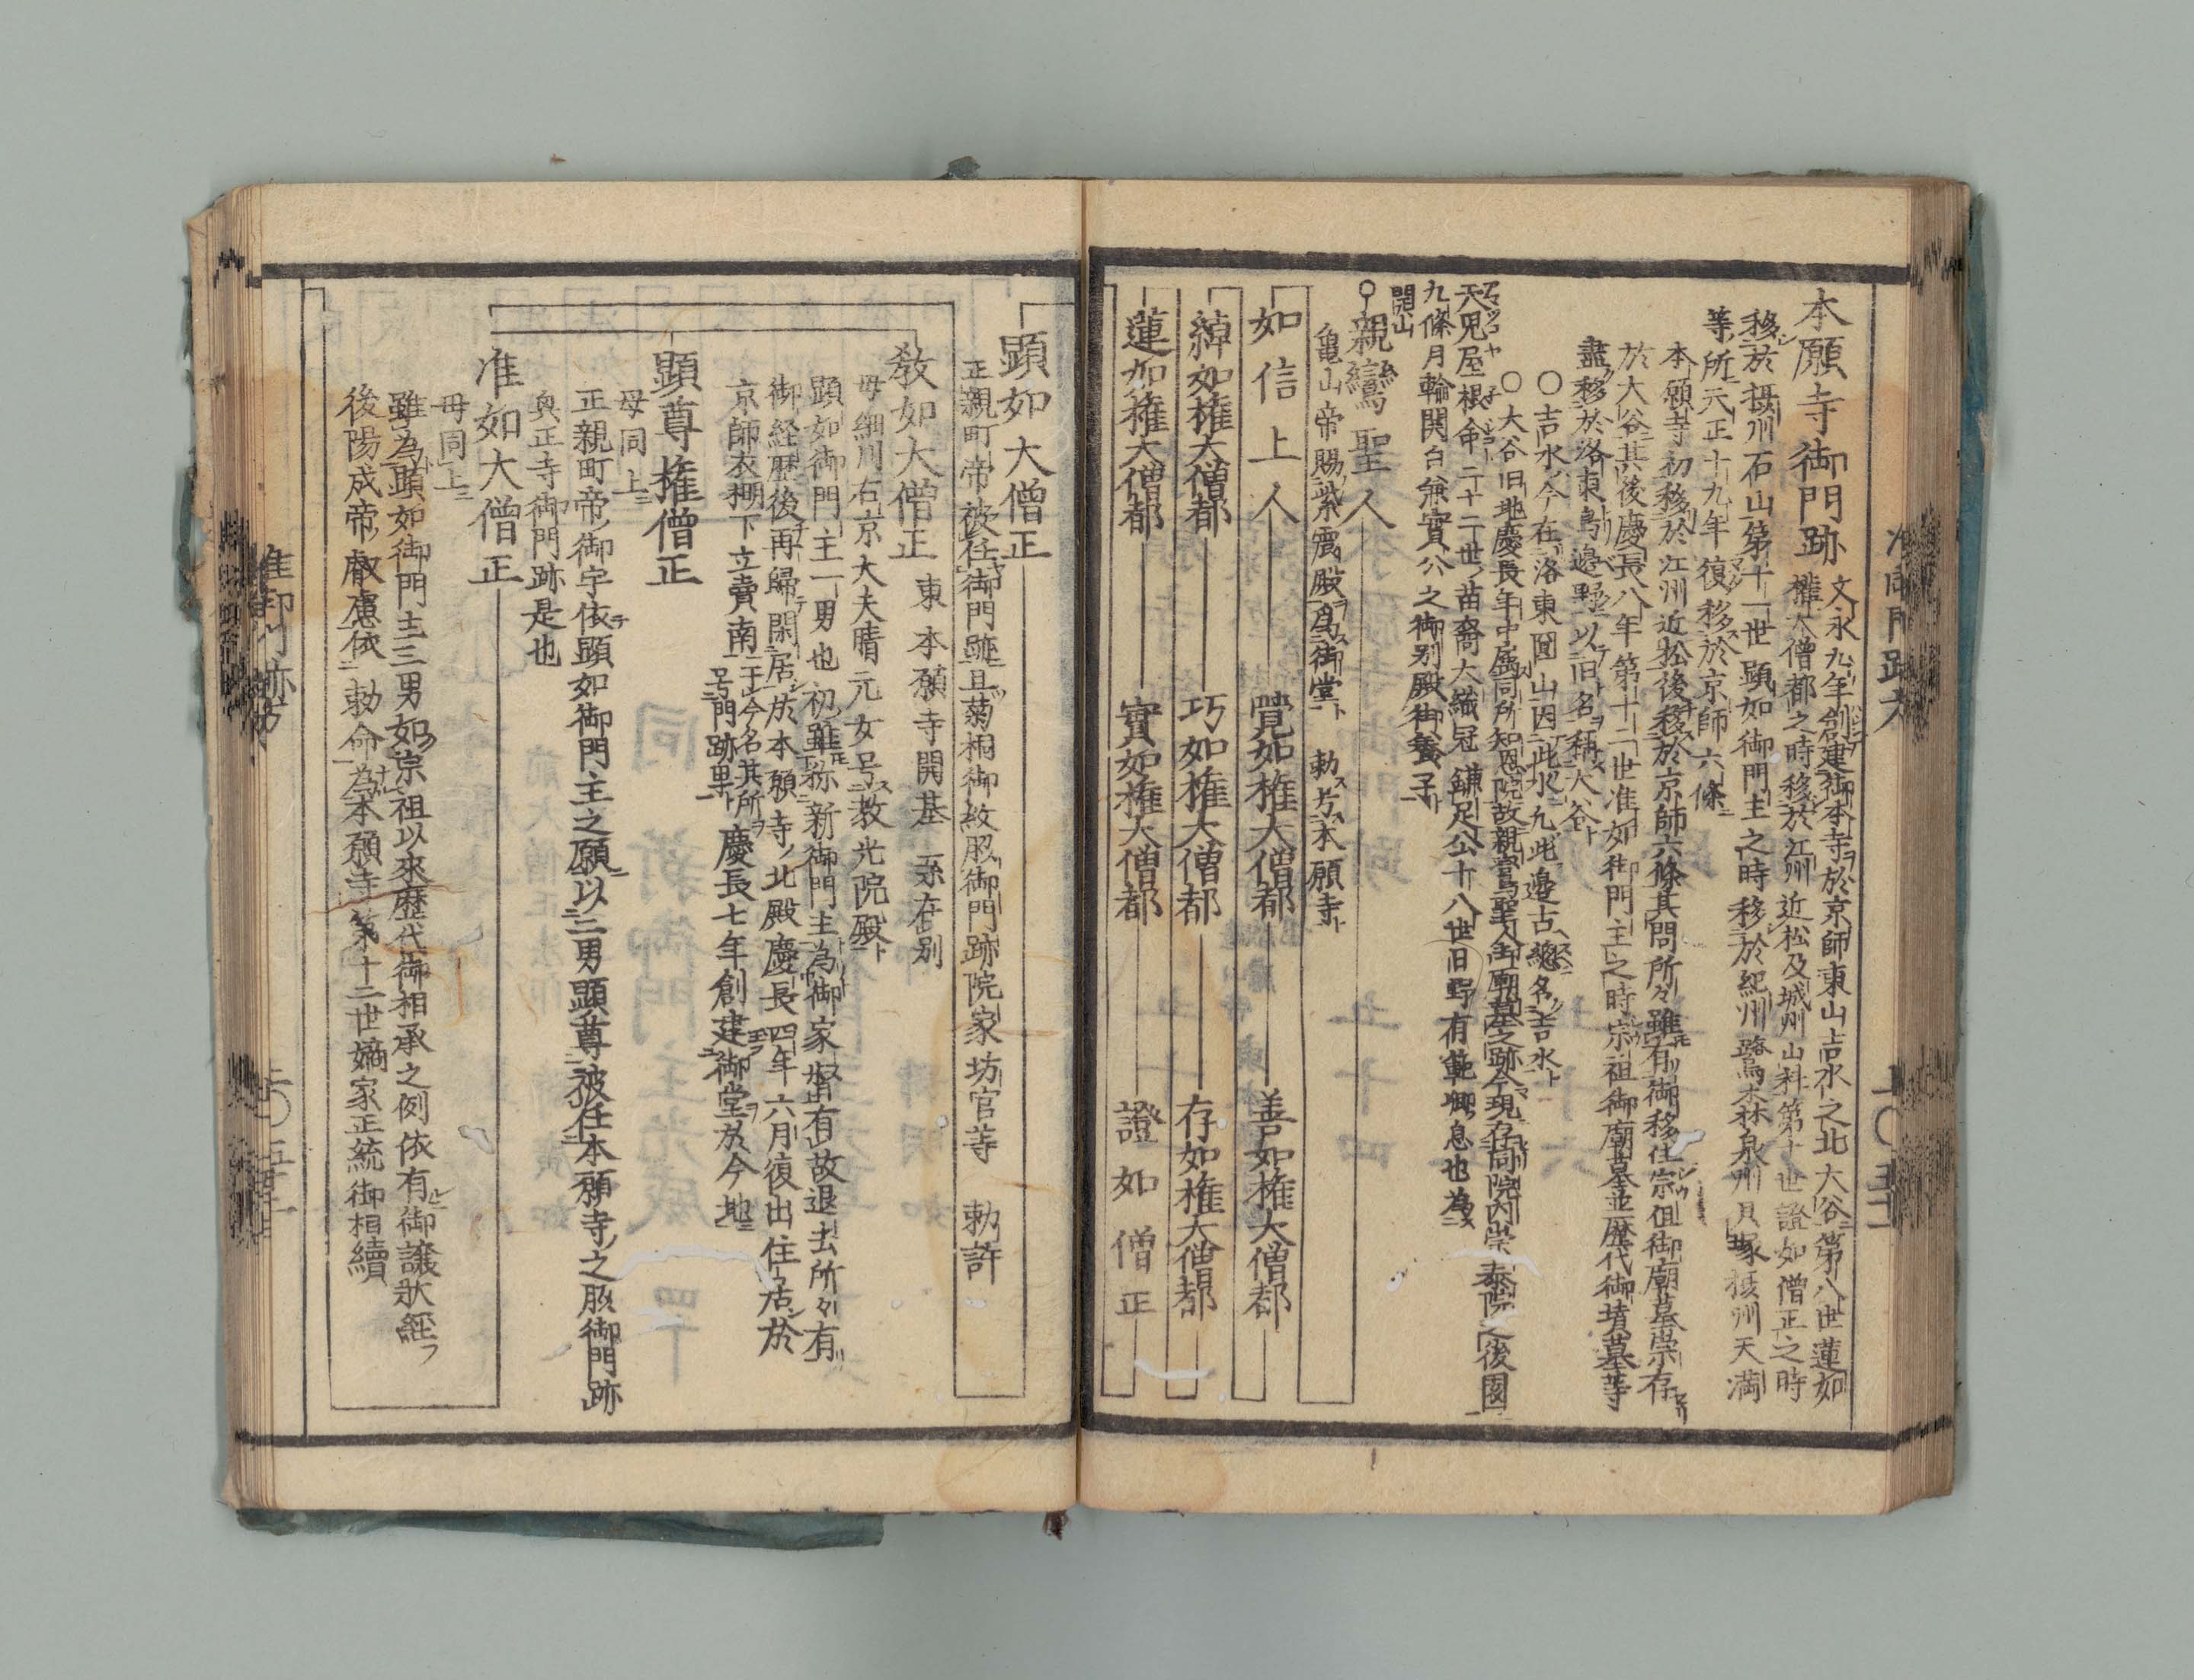 本願寺御門跡
文永九年創建御本寺於京師東山吉水之北大谷第八世蓮如
権大僧都之時移於江州近松及城州山科第十世證如僧正之時
移於摂州石山第十一世顕如御門主之時移於紀州鷺森泉州貝塚摂州天満
等所天正十九年復移於京師六條
本願寺初移於江州近松後移於京師六條其間所々雖有御移住宗祖御廟墓崇存
於大谷其後慶長八年第十二世准如御門主之時宗祖御廟墓並歴代御墳墓等
盡移於洛東鳥邊野以旧名稱大谷
〇吉水今在洛東圓山因此水九此邊古總名吉水
〇大谷旧地慶長年中属同所知恩院故親鸞聖人御廟墓之跡今現存同院内崇泰院之後園
天児屋根命二十二世苗裔大織冠鎌足公十八世旧野有範卿息也為
九條月輪関白兼實公之御別殿御養子
開山
親鸞聖人
亀山帝賜紫震殿為御堂 勅号本願寺
如信上人 覺如権大僧都 善如権大僧都
綽如権大僧都 巧如権大僧都 存如権大僧都
蓮如権大僧都 實如権大僧都 證如僧正
顕如大僧正
正親町帝被任御門跡且菊桐御紋服御門跡院家坊官等 勅許
教如大僧正 東本願寺開基 系在別
母細川右京大夫晴元女号教光院殿
顕如御門主一男也初雖称新御門主為御家督有故退去所々有
御経歴後再歸閑居於本願寺北殿慶長四年六月復出住居於
京師衣棚下立賣南 于今名其所号門跡里 慶長七年創建御堂於今地
顕尊権僧正
母同上
正親町帝御宇依顕如御門主之願以二男顕尊被任本願寺之脇御門跡
興正寺御門跡是也
准如大僧正
母同上
雖為顕如御門主三男如宗祖以來歴代御相承之例依有御譲状経
後陽成帝叡慮依 勅命為本願寺第十二世嫡家正統御相續